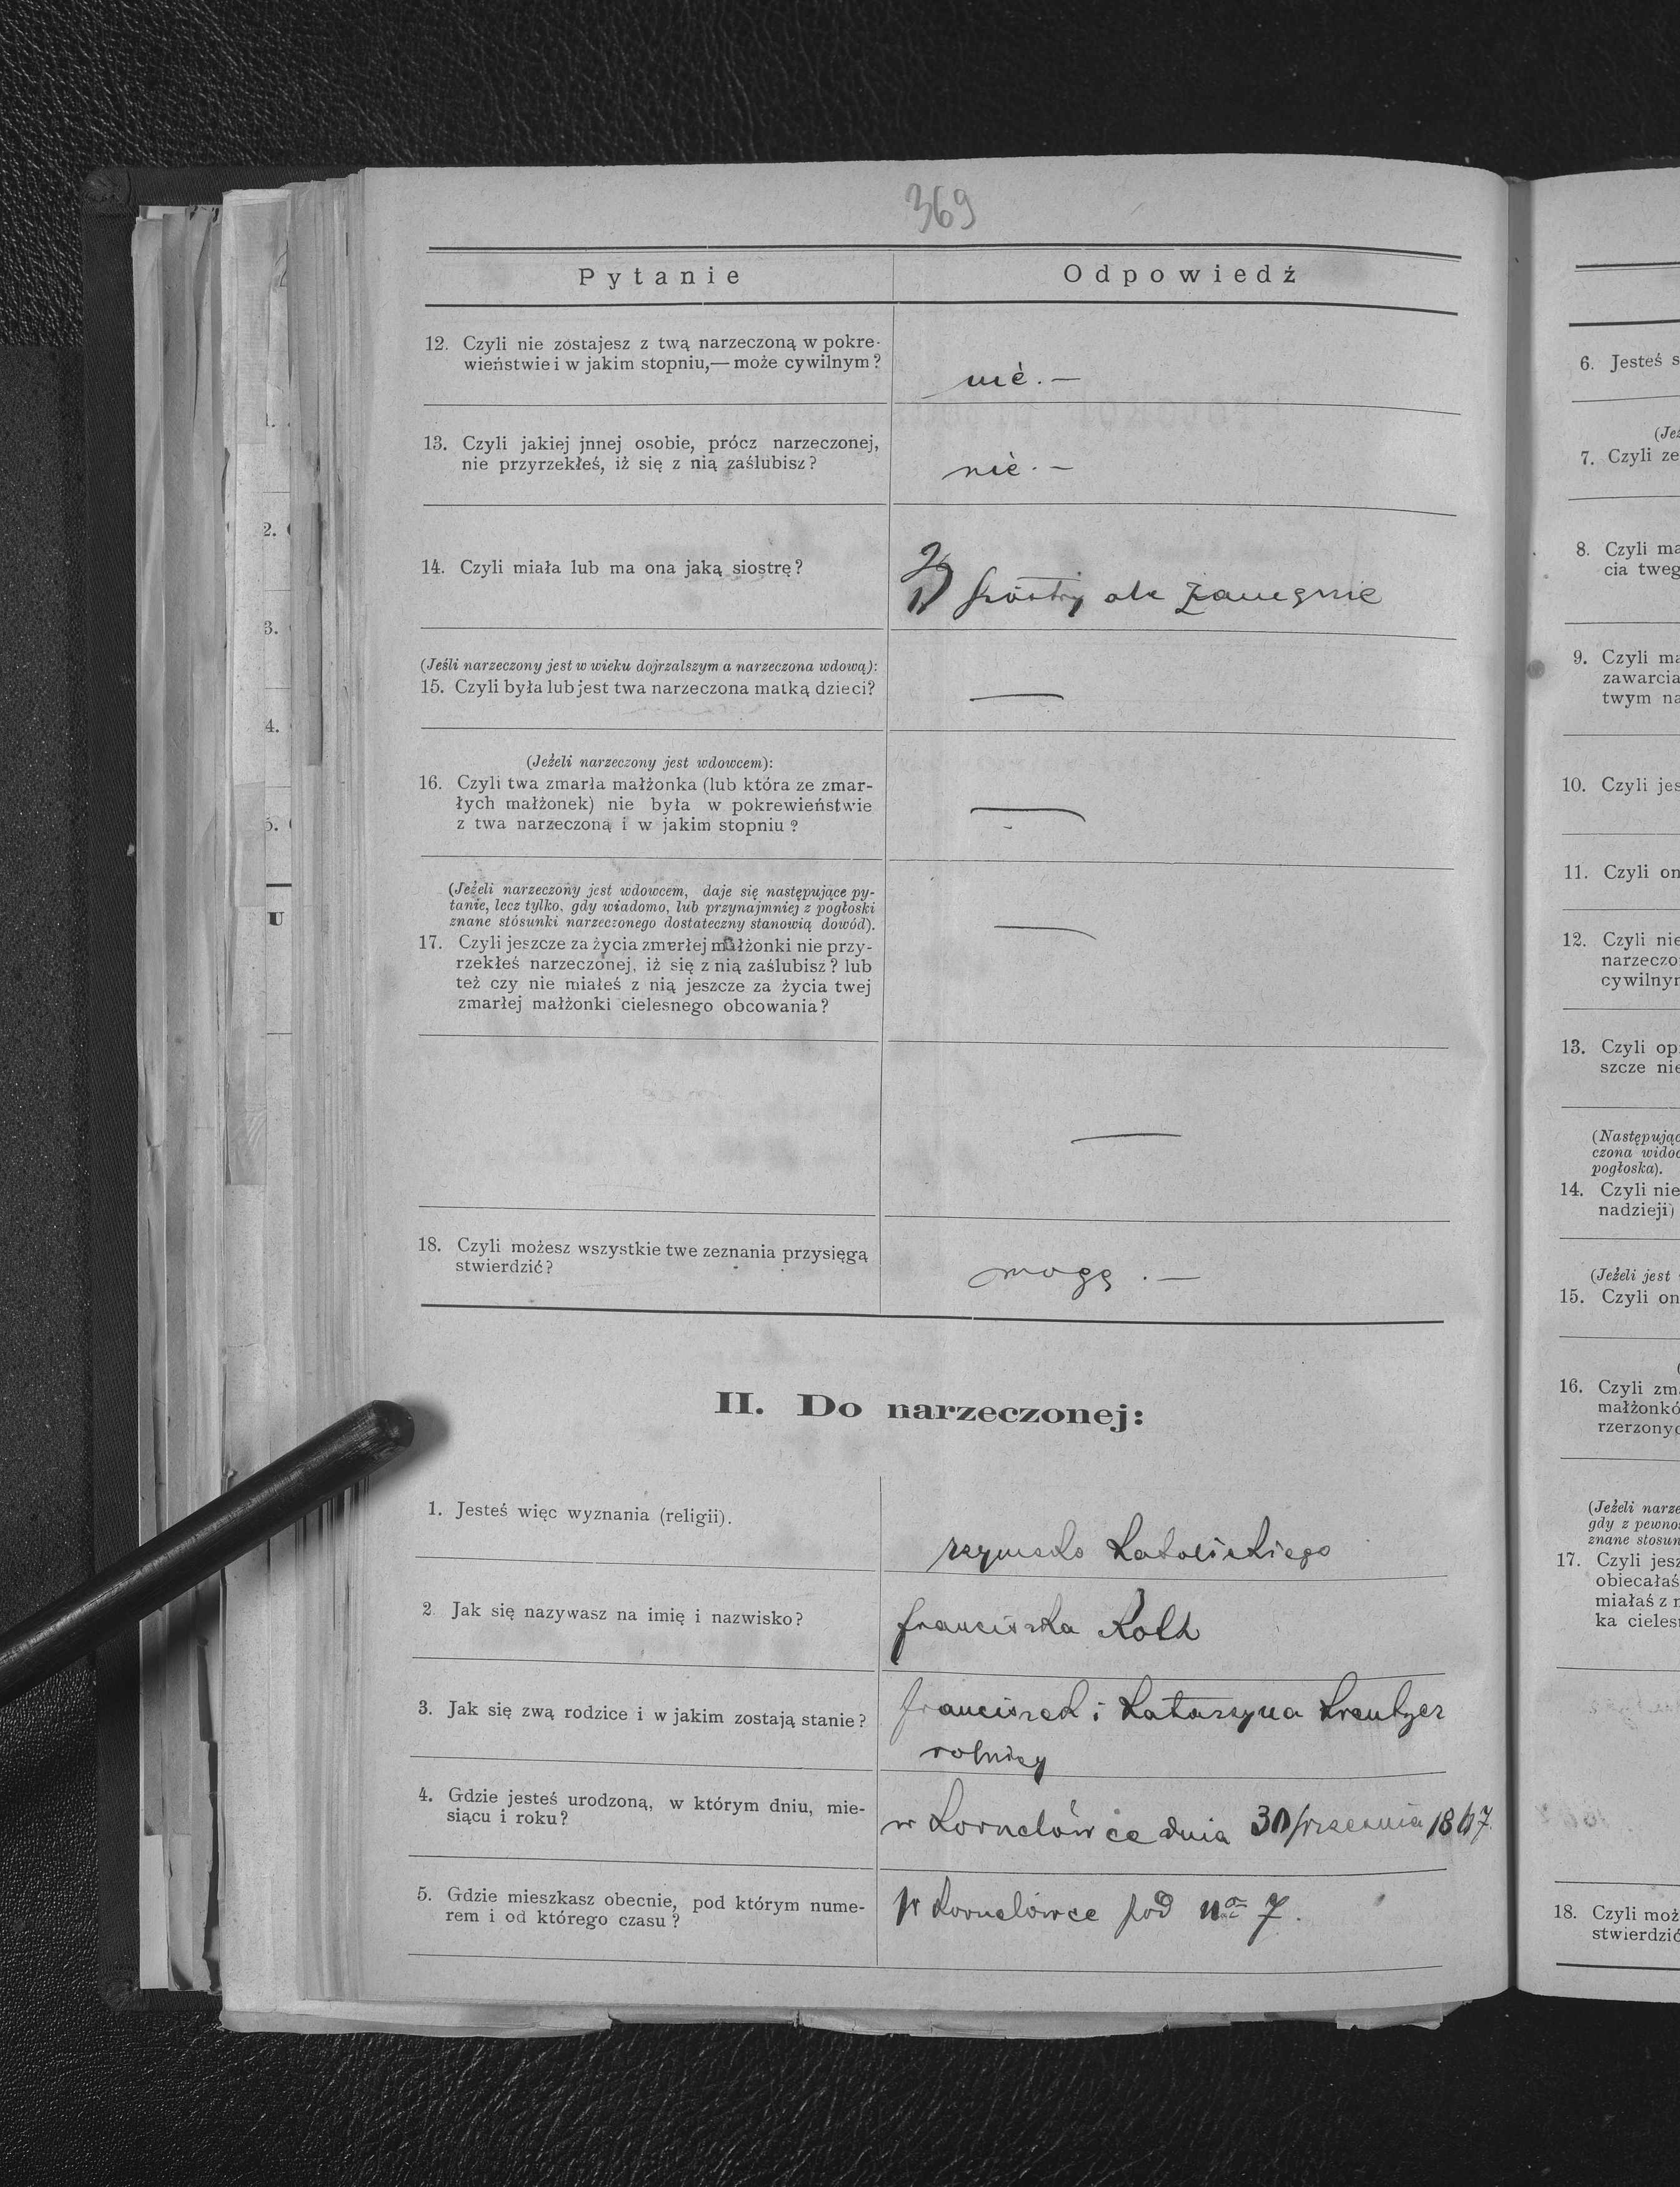 369
Pytanie
Odpowiedź
12. Czyli nie zostajesz z twą narzeczoną w pokre-
wieństwie i w jakim stopniu,— może cywilnym?
nie. —
13. Czyli jakiej jnnej osobie, prócz narzeczonej,
nie przyrzekłeś, iż się z nią zaślubisz?
nie. —
14. Czyli miała lub ma ona jaką siostrę?
siostry ale
(Jeśli narzeczony jest w wieku dojrzalszym a narzeczona wdową):
15. Czyli była lub jest twa narzeczona matką dzieci?
—
(Jeżeli narzeczony jest wdowcem):
16. Czyli twa zmarła małżonka (lub która ze zmar-
łych małżonek) nie była w pokrewieństwie
z twa narzeczoną i w jakim stopniu?
—
(Jeżeli narzeczony jest wdowcem, daje się następujące py-
tanie, lecz tylko, gdy wiadomo, lub przynajmniej z pogłoski
znane stósunki narzeczonego dostateczny stanowią dowód).
17. Czyli jeszcze za życia zmerłej małżonki nie przy-
rzekłeś narzeczonej, iż się z nią zaślubisz? lub
też czy nie miałeś z nią jeszcze za życia twej
zmarłej małżonki cielesnego obcowania?
—
—
18. Czyli możesz wszystkie twe zeznania przysięgą
stwierdzić?
mogę. —
II. Do narzeczonej:
1. Jesteś więc wyznania (religii).
rzymsko katolickiego
2. Jak się nazywasz na imię i nazwisko?
franciszka Roth
3. Jak się zwą rodzice i w jakim zostają stanie?
franciszek i Katarzyna Kreutzer
rolnicy
4. Gdzie jesteś urodzoną, w którym dniu, mie-
siącu i roku?
w Kornelówce dnia 30 września
5. Gdzie mieszkasz obecnie, pod którym nume-
rem i od którego czasu?
W Kornelówce pod no 7.
1.
2.
3.
4.
5.
U
6. Jesteś s
(Jeż
7. Czyli ze
8. Czyli ma
cia tweg
9. Czyli ma
zawarcia
twym na
10. Czyli jes
11. Czyli on
12. Czyli nie
narzeczo
cywilnyn
13. Czyli op
szcze nie
(Następując
czona widoc
pogłoska).
14. Czyli nie
nadzieji)
(Jeżeli jest
15. Czyli on
(
16. Czyli zm
małżonkó
rzerzonyc
(Jeżeli narze
gdy z pewno
znane stosun
17. Czyli jesz
obiecałaś
miałaś z n
ka cieles
18. Czyli moż
stwierdzić